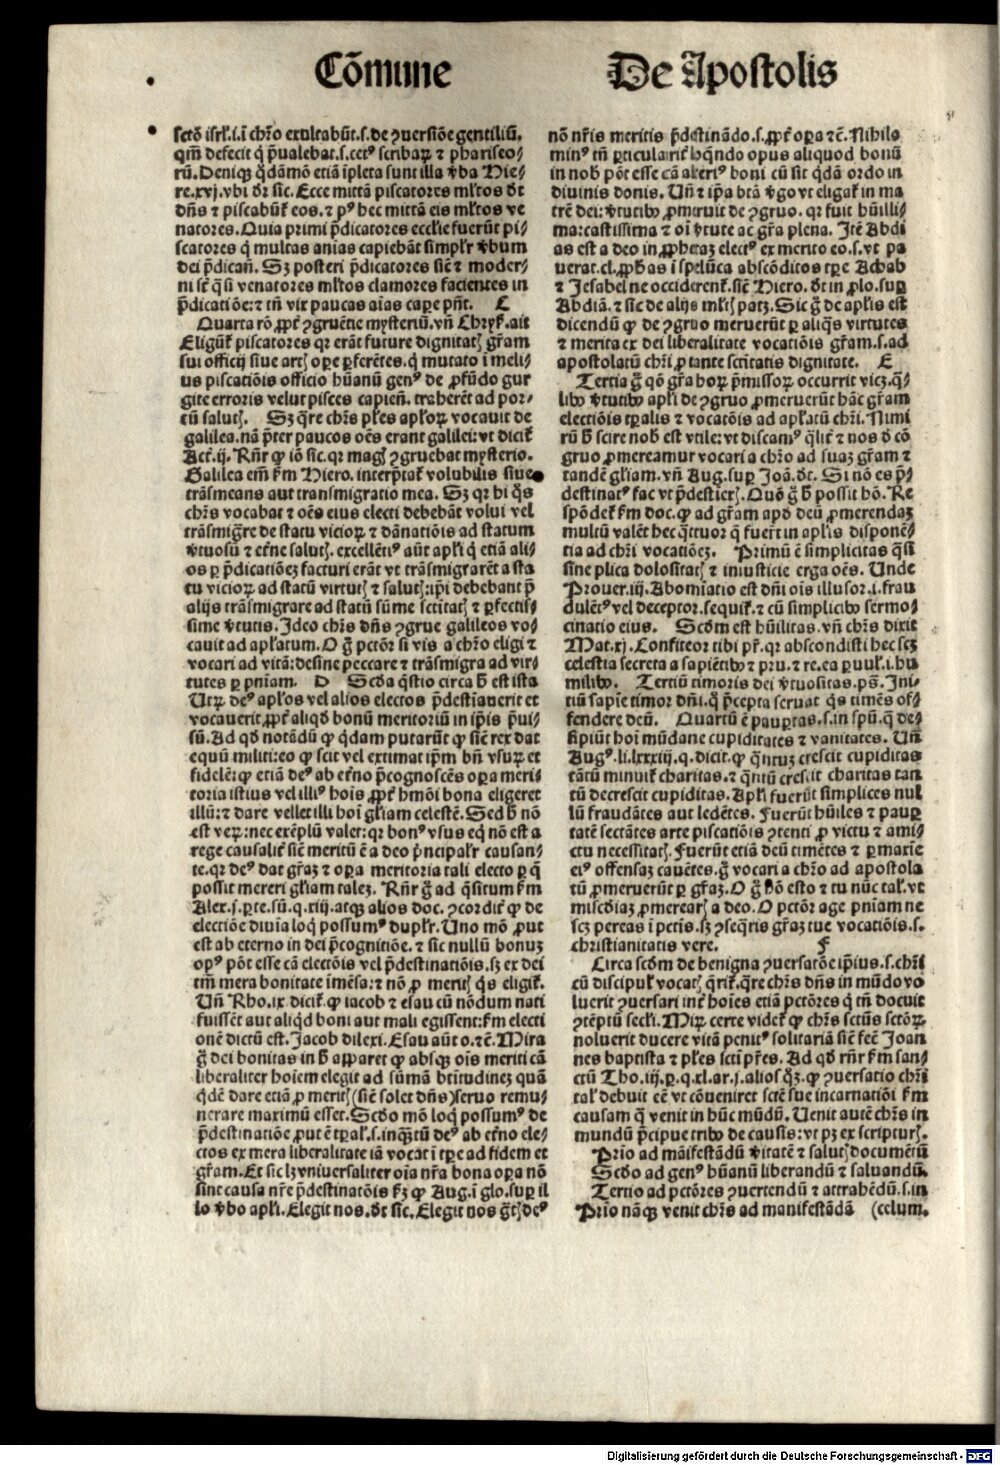 Cõmune De Apostolis
sctõ isrl̛.i.ĩ chr̃o exultabũt.s.de ꝯuersiõe gentiliũ.
qm̃ defecit q̃ p̃ualebat.s.cetꝰ scribaꝝ ⁊ phariseo⸗
rũ.Deniqꝫ q̃dãmõ etiã ĩpleta sunt illa v̾ba Hie⸗
re.xvj.vbi dr̃ sic. Ecce mittã piscatores ml̛tos dt̃
dñs ⁊ piscabũt̛ eos.⁊ pꝰ hec mittã eis ml̛tos ve
natores.Quia primi p̃dicatores eccl̛ie fuerũt pi⸗
scatores q̃ multas anĩas capiebãt simpl̛r v̾bum
dei p̃dicañ. Sꝫ posteri p̃dicatores sic̃ ⁊ moder⸗
ni st̃ q̃si venatores ml̛tos clamores facientes in
p̃dicatiõe:⁊ tñ vix paucas aĩas caꝑe pñt. C
Quarta rõ ꝓpt̛ ꝯgruẽtie mysteriũ.vñ Chryſ̛.ait
Eligũt̛ piscatores qꝛ erãt future dignitatꝭ gr̃am
sui officij siue artꝭ oꝑe ꝑferẽtes.q̃ mutato ĩ meli⸗
us piscatiõis officio hũanũ genꝰ de ꝓfũdo gur
gite erroris velut pisces capieñ. traherẽt ad por⸗
tũ salutꝭ. Sꝫ q̃re chr̃s pl̛es apl̛oꝝ vocauit de
galilea.nã p̃ter paucos oẽs erant galilei:vt dicit̛
Act̛.ij. Rñr̃ ꝙ iõ sic.qꝛ magꝭ ꝯgruebat mysterio.
Galilea em̃ ẜm Hiero.interp̃tat̛ volubilis siue
trãsmeans aut transmigratio mea. Sꝫ qꝛ hi q̃s
chr̃s vocabat ⁊ oẽs eius electi debebãt volui vel
trãsmigr̃e de statu vicioꝝ ⁊ dãnatiõis ad statum
v̾tuosũ ⁊ et̾ne salutꝭ.excellẽtiꝰ aũt apl̛i q̃ etiã ali⸗
os ꝑ p̃dicatiõeꝫ facturi erãt vt trãsmigrarẽt a sta
tu vicioꝝ ad statũ virtutꝭ ⁊ salutꝭ:ip̃i debebant p̃
alijs trãsmigrare ad statũ sũme sctĩtatꝭ ⁊ ꝑfectis⸗
sime v̾tutis. Ideo chr̃s dñs ꝯgrue galileos vo⸗
cauit ad apl̛atum.O g̃ pctõr si vis a chr̃o eligi ⁊
vocari ad vitã:desine peccare ⁊ trãsmigra ad vir⸗
tutes ꝑ pñiam. D Scd̾a q̃stio circa h̃ est ista
Utꝝ deꝰ apl̛os vel alios electos p̃destiauerit et
vocauerit ꝓpt̛ aliqd̾ bonũ meritoriũ in ip̃is p̃ui⸗
sũ.Ad qd̾ notãdũ ꝙ q̃dam putarũt ꝙ sic̃ rex dat
equũ militi:eo ꝙ scit vel extimat ip̃m bñ vsuꝝ et
fidelẽ:ꝙ etiã deꝰ ab et̾no p̃cognoscẽs oꝑa meri⸗
toria istius vel illiꝰ hoĩs ꝓpt̛ hmõi bona eligeret
illũ:⁊ dare vellet illi hoĩ gl̛iam celestẽ.Sed h̃ nõ
est veꝝ:nec exẽplũ valet:qꝛ bonꝰ vsus eq̃ nõ est a
rege causalit̛ sic̃ meritũ ẽ a deo p̃ncipal̛r causan⸗
te.qꝛ deꝰ dat gr̃aꝫ ⁊ oꝑa meritoria tali electo ꝑ q̃
possit mereri gl̛iam taleꝫ. Rñr̃ g̃ ad q̃situm ẜm
Alex.j.ꝑte.sũ.q.xiij.atqꝫ alios doc.ꝯcordit̛ ꝙ de
electiõe diuĩa loq̃ possumꝰ dupl̛r.Uno mõ ꝓut
est ab eterno in dei p̃cognitiõe.⁊ sic nullũ bonuꝫ
opꝰ põt esse cã electõis vel p̃destinatiõis.sꝫ ex dei
tm̃ mera bonitate ĩmẽsa:⁊ nõ ꝓ meritꝭ q̃s eligit̛.
Uñ Rho.ix.dicit̛.ꝙ iacob ⁊ esau cũ nõdum nati
fuissẽt aut aliqd̾ boni aut mali egissent:ẜm electi
onẽ dictũ est.Jacob dilexi.Esau aũt o.⁊c̃.Mira
g̃ dei bonitas in h̃ apparet ꝙ absqꝫ oĩs meriti cã
liberaliter hoĩem elegit ad sũmã btĩtudineꝫ quã
q̃dẽ dare etiã ꝓ meritꝭ(sic̃ solet dñs)seruo remu⸗
nerare maximũ esset.Scd̾o mõ loq̃ possumꝰ de
p̃destinatiõe ꝓut ẽ tꝑal̛.s.inq̃tũ deꝰ ab et̾no ele⸗
ctos ex mera liberalitate iã vocat ĩ tꝑe ad fidem et
gr̃am.Et sic lꝫ vniuersaliter oĩa nr̃a bona oꝑa nõ
sint causa nr̃e p̃destinatõis ẜꝫ ꝙ Aug.ĩ glo.suꝑ il
lo v̾bo apl̛i.Elegit nos.dt̃ sic.Elegit nos g̃tꝭ deꝰ
nõ nr̃is meritis p̃destinãdo.s.ꝓpt̛ oꝑa ⁊c̃.Nihilo
minꝰ tñ ꝑticularit̛ hñdo opus aliquod bonũ
in nob̾ põt esse cã alteriꝰ boni cũ sit q̃dã ordo in
diuinis donis. Uñ ⁊ ip̃a btã v̾go vt eligat̛ in ma
trẽ dei:v̾tutibꝰ ꝓmeruit de ꝯgruo.qꝛ fuit hũilli⸗
ma:castissima ⁊ oĩ v̾tute ac gr̃a plena. Itẽ Abdi
as est a deo in ꝓphetaꝫ electꝰ ex merito eo.s.vt pa
uerat.cl.ꝓph̾as ĩ spelũca abscõditos tꝑe Achab
⁊ Jesabel ne occiderent̛.sic̃ Hiero.dt̃ in ꝓlo.suꝑ
Abdiã.⁊ sic de alijs ml̛tꝭ patꝫ. Sic g̃ de apl̛is est
dicendũ ꝙ de ꝯgruo meruerũt ꝑ aliq̃s virtutes
⁊ merita ex dei liberalitate vocatiõis gr̃am.s.ad
apostolatũ chr̃i ꝓ tante sctĩtatis dignitate. E
Tertia g̃ qõ gr̃a hoꝝ p̃missoꝝ occurrit vicꝫ.q̃⸗
libꝰ v̾tutibꝰ apl̛i de ꝯgruo ꝓmeruerũt hãc gr̃am
electiõis tꝑalis ⁊ vocatõis ad apl̛atũ chr̃i. Nimi
rũ h̃ scire nob̾ est vtile:vt discamꝰ q̃lit̛ ⁊ nos d̾ cõ
gruo ꝓmereamur vocari a chr̃o ad suaꝫ gr̃am ⁊
tandẽ gl̛iam.vñ Aug.suꝑ Joã.dt̃. Si nõ es p̃⸗
destinatꝰ fac vt p̃destierꝭ.Quõ g̃ h̃ possit hõ. Re
spõdet̛ ẜm doc.ꝙ ad gr̃am apd̾ deũ ꝓmerendaꝫ
multũ valẽt hec q̃ttuor q̃ fuer̃t in apl̛is disponẽ⸗
tia ad chr̃i vocatiõeꝫ. Primũ ẽ simplicitas q̃si
sine plica dolositatꝭ ⁊ iniusticie erga oẽs. Unde
Prouer.iij.Abomĩatio est dñi oĩs illusor.i.frau
dulẽtꝰ vel deceptor.sequit̛.⁊ cũ simplicibꝰ sermo⸗
cinatio eius. Scd̾m est hũilitas.vñ chr̃s dixit
Mat.xj.Confiteor tibi pr̃.qꝛ abscondisti hec scꝫ
celestia secreta a sapiẽtibꝰ ⁊ pru.⁊ re.ea ꝑuul̛.i.hu
milibꝰ. Tertiũ timoris dei v̾tuositas.ps̃.Ini⸗
tiũ sapiẽtie timor dñi.q̃ p̃cepta seruat q̃s timẽs of⸗
fendere deũ. Quartũ ẽ pauꝑtas.s.in spũ.q̃ de⸗
spiciũt hoĩ mũdane cupiditates ⁊ vanitates. Uñ
Augꝰ.li.lxxxiij.q.dicit.ꝙ q̃ntuꝫ crescit cupiditas
tãtũ minuit̛ charitas.⁊ q̃ntũ crescit charitas tan
tũ decrescit cupiditas.Apl̛i fuerũt simplices nul
lũ fraudãtes aut ledẽtes. Fuerũt hũiles ⁊ pauꝑ
tatẽ sectãtes arte piscatiõis ꝯtenti ꝓ victu ⁊ ami⸗
ctu necessitatꝭ.Fuerũt etiã deũ timẽtes ⁊ ꝑ maxĩe
eiꝰ offensaꝫ cauẽtes.g̃ vocari a chr̃o ad apostola
tũ ꝓmeruerũt ꝑ gr̃aꝫ.O g̃ hõ esto ⁊ tu nũc tal̛.vt
misc̃diaꝫ ꝓmerearꝭ a deo.O pctõr age pñiam ne
scꝫ pereas ĩ pctĩs.sꝫ ꝯseq̃ris gr̃aꝫ tue vocatiõis.s.
christianitatis vere. F
Circa scd̾m de benigna ꝯuersatõe ip̃ius.s.chr̃i
cũ discipul̛ vocatꝭ q̃rit̛.q̃re chr̃s dñs in mũdo vo
luerit ꝯuersari int̛ hoĩes etiã pctõres q̃ tñ docuit
ꝯtẽptũ secl̛i.Miꝝ certe videt̛ ꝙ chr̃s sctũs sctõꝝ
noluerit ducere vitã penitꝰ solitariã sic̃ fec̃ Joan
nes baptista ⁊ pl̛es sctĩ pr̃es. Ad qd̾ rñr̃ ẜm san⸗
ctũ Tho.iij.ꝑ.q.xl.ar.j.aliosqꝫ.ꝙ ꝯuersatio chr̃i
tal̛ debuit eẽ vt cõueniret sctẽ sue incarnatiõi ẜm
causam q̃ venit in hũc mũdũ. Uenit autẽ chr̃s in
mundũ p̃cipue tribꝰ de causis:vt pꝫ ex scripturꝭ.
Prĩo ad mãifestãdũ v̾itatẽ ⁊ salutꝭ documẽtũ
Scd̾o ad genꝰ hũanũ liberandũ ⁊ saluandũ.
Tertio ad pctõres ꝯuertendũ ⁊ attrahẽdũ.s.in
Prĩo nãqꝫ venit chr̃s ad manifestãdã (celum.
Digitalisierung gefördert durch die Deutsche Forschungsgemeinschaft - DFG